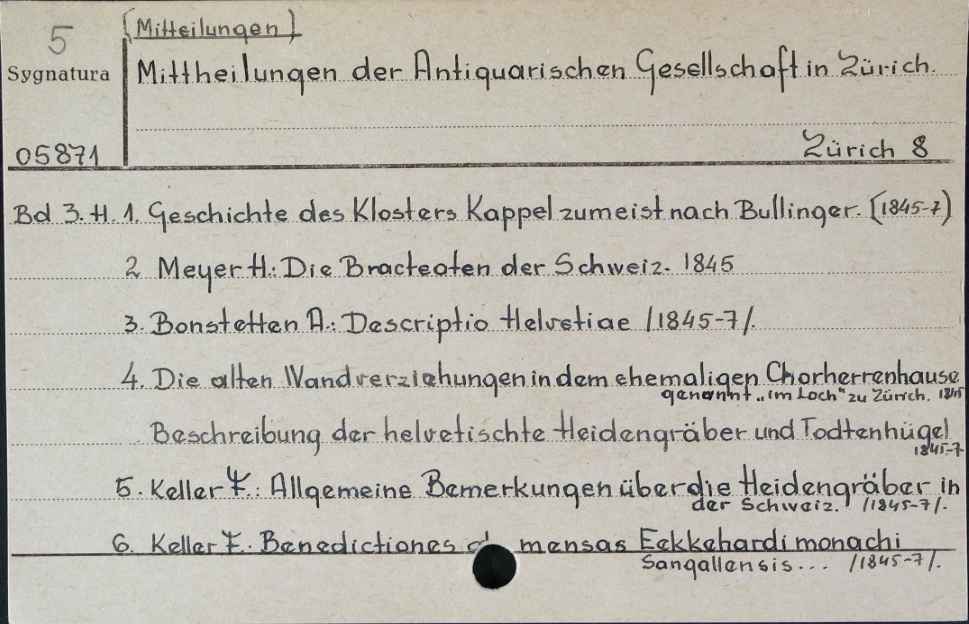 5
[Mitteilungen]
Sygnatura
Mittheilungen der Antiquarischen Gesellschaft in Zürich.
05871
Zürich 8
Bd 3. H. 1. Geschichte des Klosters Kappel zumeist nach Bullinger. [1845-7]
2 Meyer H.: Die Bracteaten der Schweiz. 1845
3. Bonstetten A.: Descriptio Helvetiae /1845-7/.
4. Die alten Wandverziehungen in dem ehemaligen Chorherrenhause
genannt "im Loch" zu Zürich. 1845
Beschreibung der helvetischte Heidengräber und Todtenhügel
1845-7
5. Keller F.: Allgemeine Bemerkungen über die Heidengräber in
der Schweiz. /1845-7/.
6. Keller F. Benedictiones mensas Eekkehardi monachi
Sangallensis... /1845-7/.